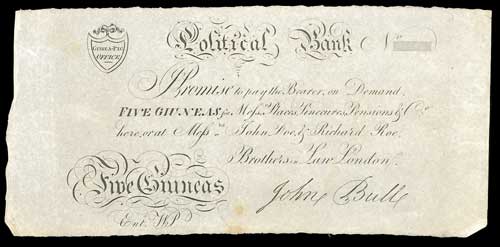 GIVE & TAKE
OFFICE
Political Bank No
I Promise to pay the Bearer, on Demand,
FIVE GIUNEAS for Messrs. Places, Sinecures, Pensions & Co.
here, or at Messrs. John Doe, & Richard Roe,
Brothers in Law London.
Five Giuneas John Bull
Ent. W P